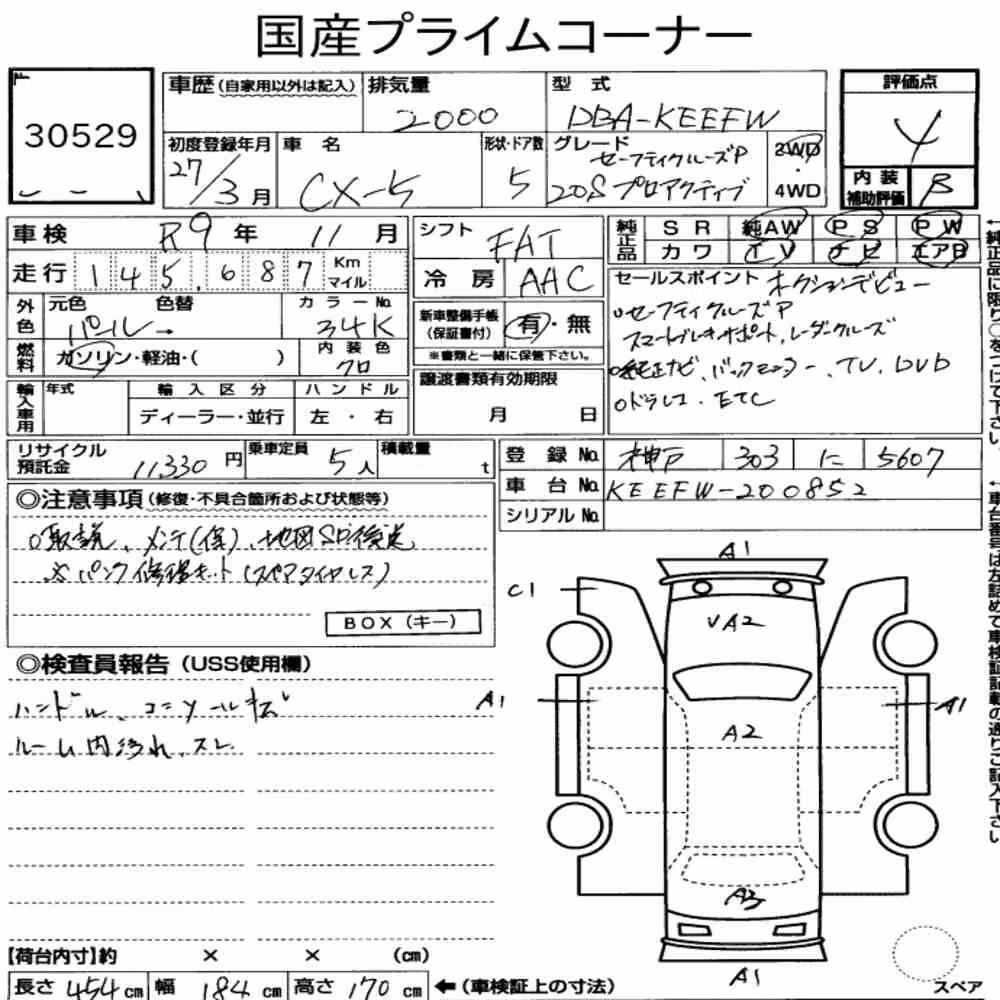 国産プライムコーナー
30529
車歴(自家用以外は記入)
排気量
2000
型式
DBA-KEEFW
評価点
4
内装補助評価
B
初度登録年月
27/3月
車名
CX-5
形状・ドア数
5
グレード
セーフティクルーズP
20S プロアクティブ
2WD
・
4WD
車検
R9年 11月
走行
145,687
Km
マイル
シフト
FAT
冷房
AAC
純正品
SR
純AW
PS
PW
カワ
TV
ナビ
エアB
外色
元色
パール→
色替
カラーNo.
34K
燃料
ガソリン・軽油・( )
内装色
クロ
新車整備手帳
(保証書付)
有・無
※書類と一緒に保管下さい。
セールスポイント オクションデビュー
○セーフティクルーズP
スマートブレーキサポート、レーダークルーズ
○純正ナビ、バックモニター、TV、DVD
○ドラレコ、ETC
輸入車用
年式
輸入区分
ディーラー・並行
ハンドル
左・右
譲渡書類有効期限
月 日
リサイクル預託金
11330円
乗車定員
5人
積載量
t
登録No.
神戸 303 に 5607
車台No.
KEEFW-200852
シリアルNo.
◎注意事項(修復・不具合箇所および状態等)
○取説、メンテ(保)、地図SD後送
※パンク修理キット(スペアタイヤレス)
BOX(キー)
◎検査員報告(USS使用欄)
ハンドル、コンソールキズ
ルーム内汚れ、スレ
A1
C1
VA2
A1
A1
A2
A3
A1
スペア
【荷台内寸】約 × × (cm)
長さ 454cm 幅 184cm 高さ 170cm ←(車検証上の寸法)
←純正品に限り○をつけて下さい。
←車台番号は左詰めで車検証記載の通りご記入下さい